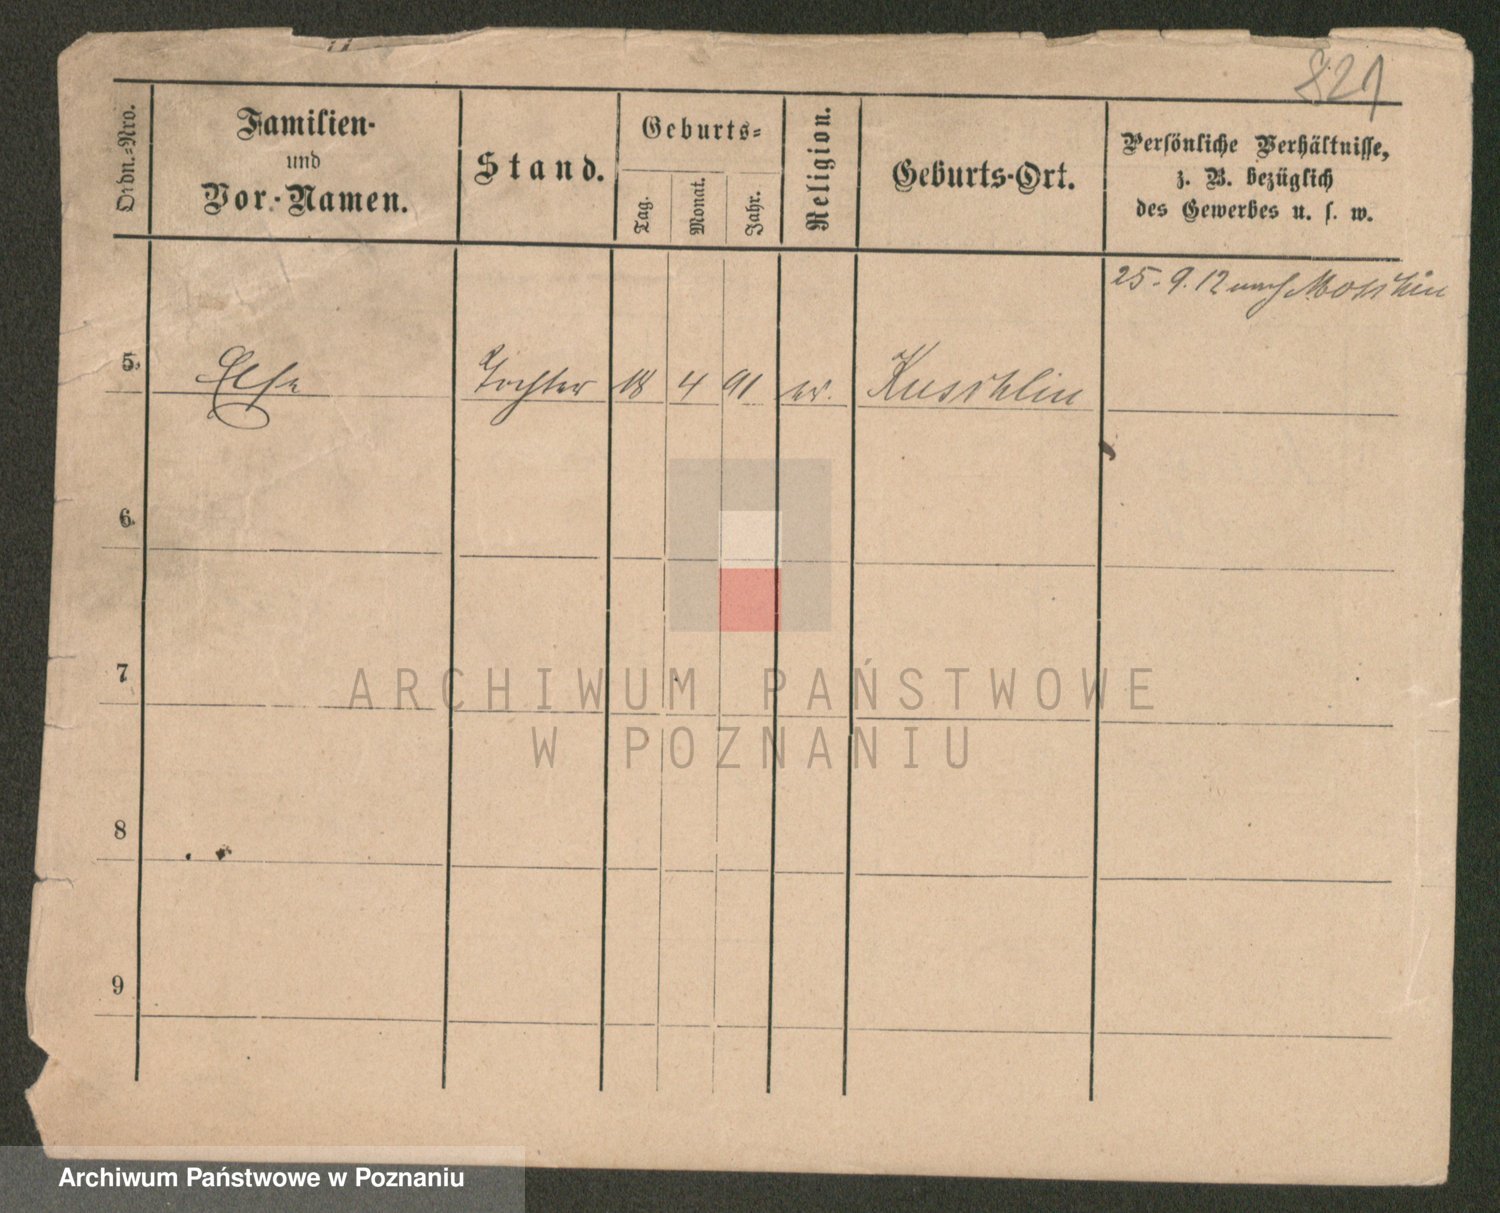 821
Ordn.-Nro.
Familien-
und
Vor.-Namen.
Stand.
Geburts-
Tag.
Monat.
Jahr.
Religion.
Geburts-Ort.
Persönliche Verhältnisse,
z. B. bezüglich
des Gewerbes u. s. w.
25.9.12 nach Moschin
5. Else Tochter 18 4 91 ev. Kuschlin
6.
7
8
9
ARCHIWUM PAŃSTWOWE
W POZNANIU
Archiwum Państwowe w Poznaniu